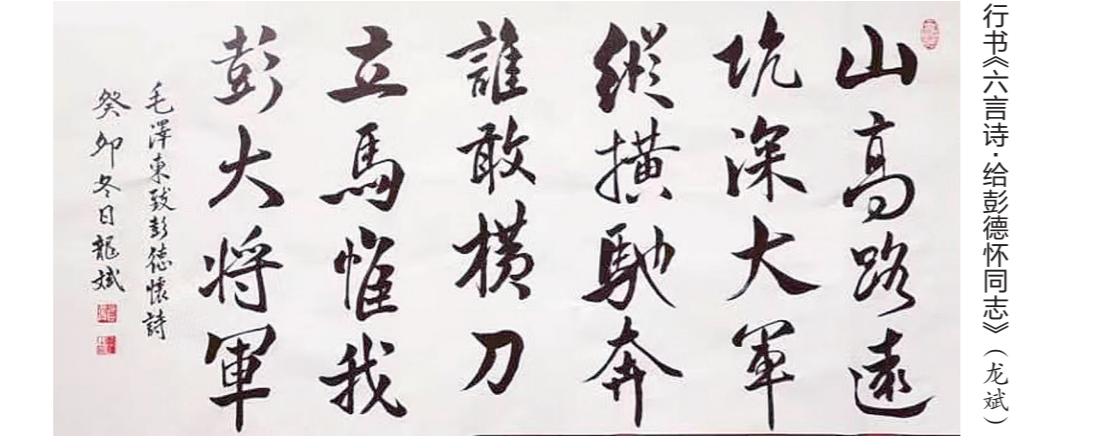 行书《六言诗·给彭德怀同志》（龙斌）
山高路遠
坑深大軍
縱横馳奔
誰敢横刀
立馬惟我
彭大将軍
毛澤東致彭德懷詩
癸卯冬日龍斌